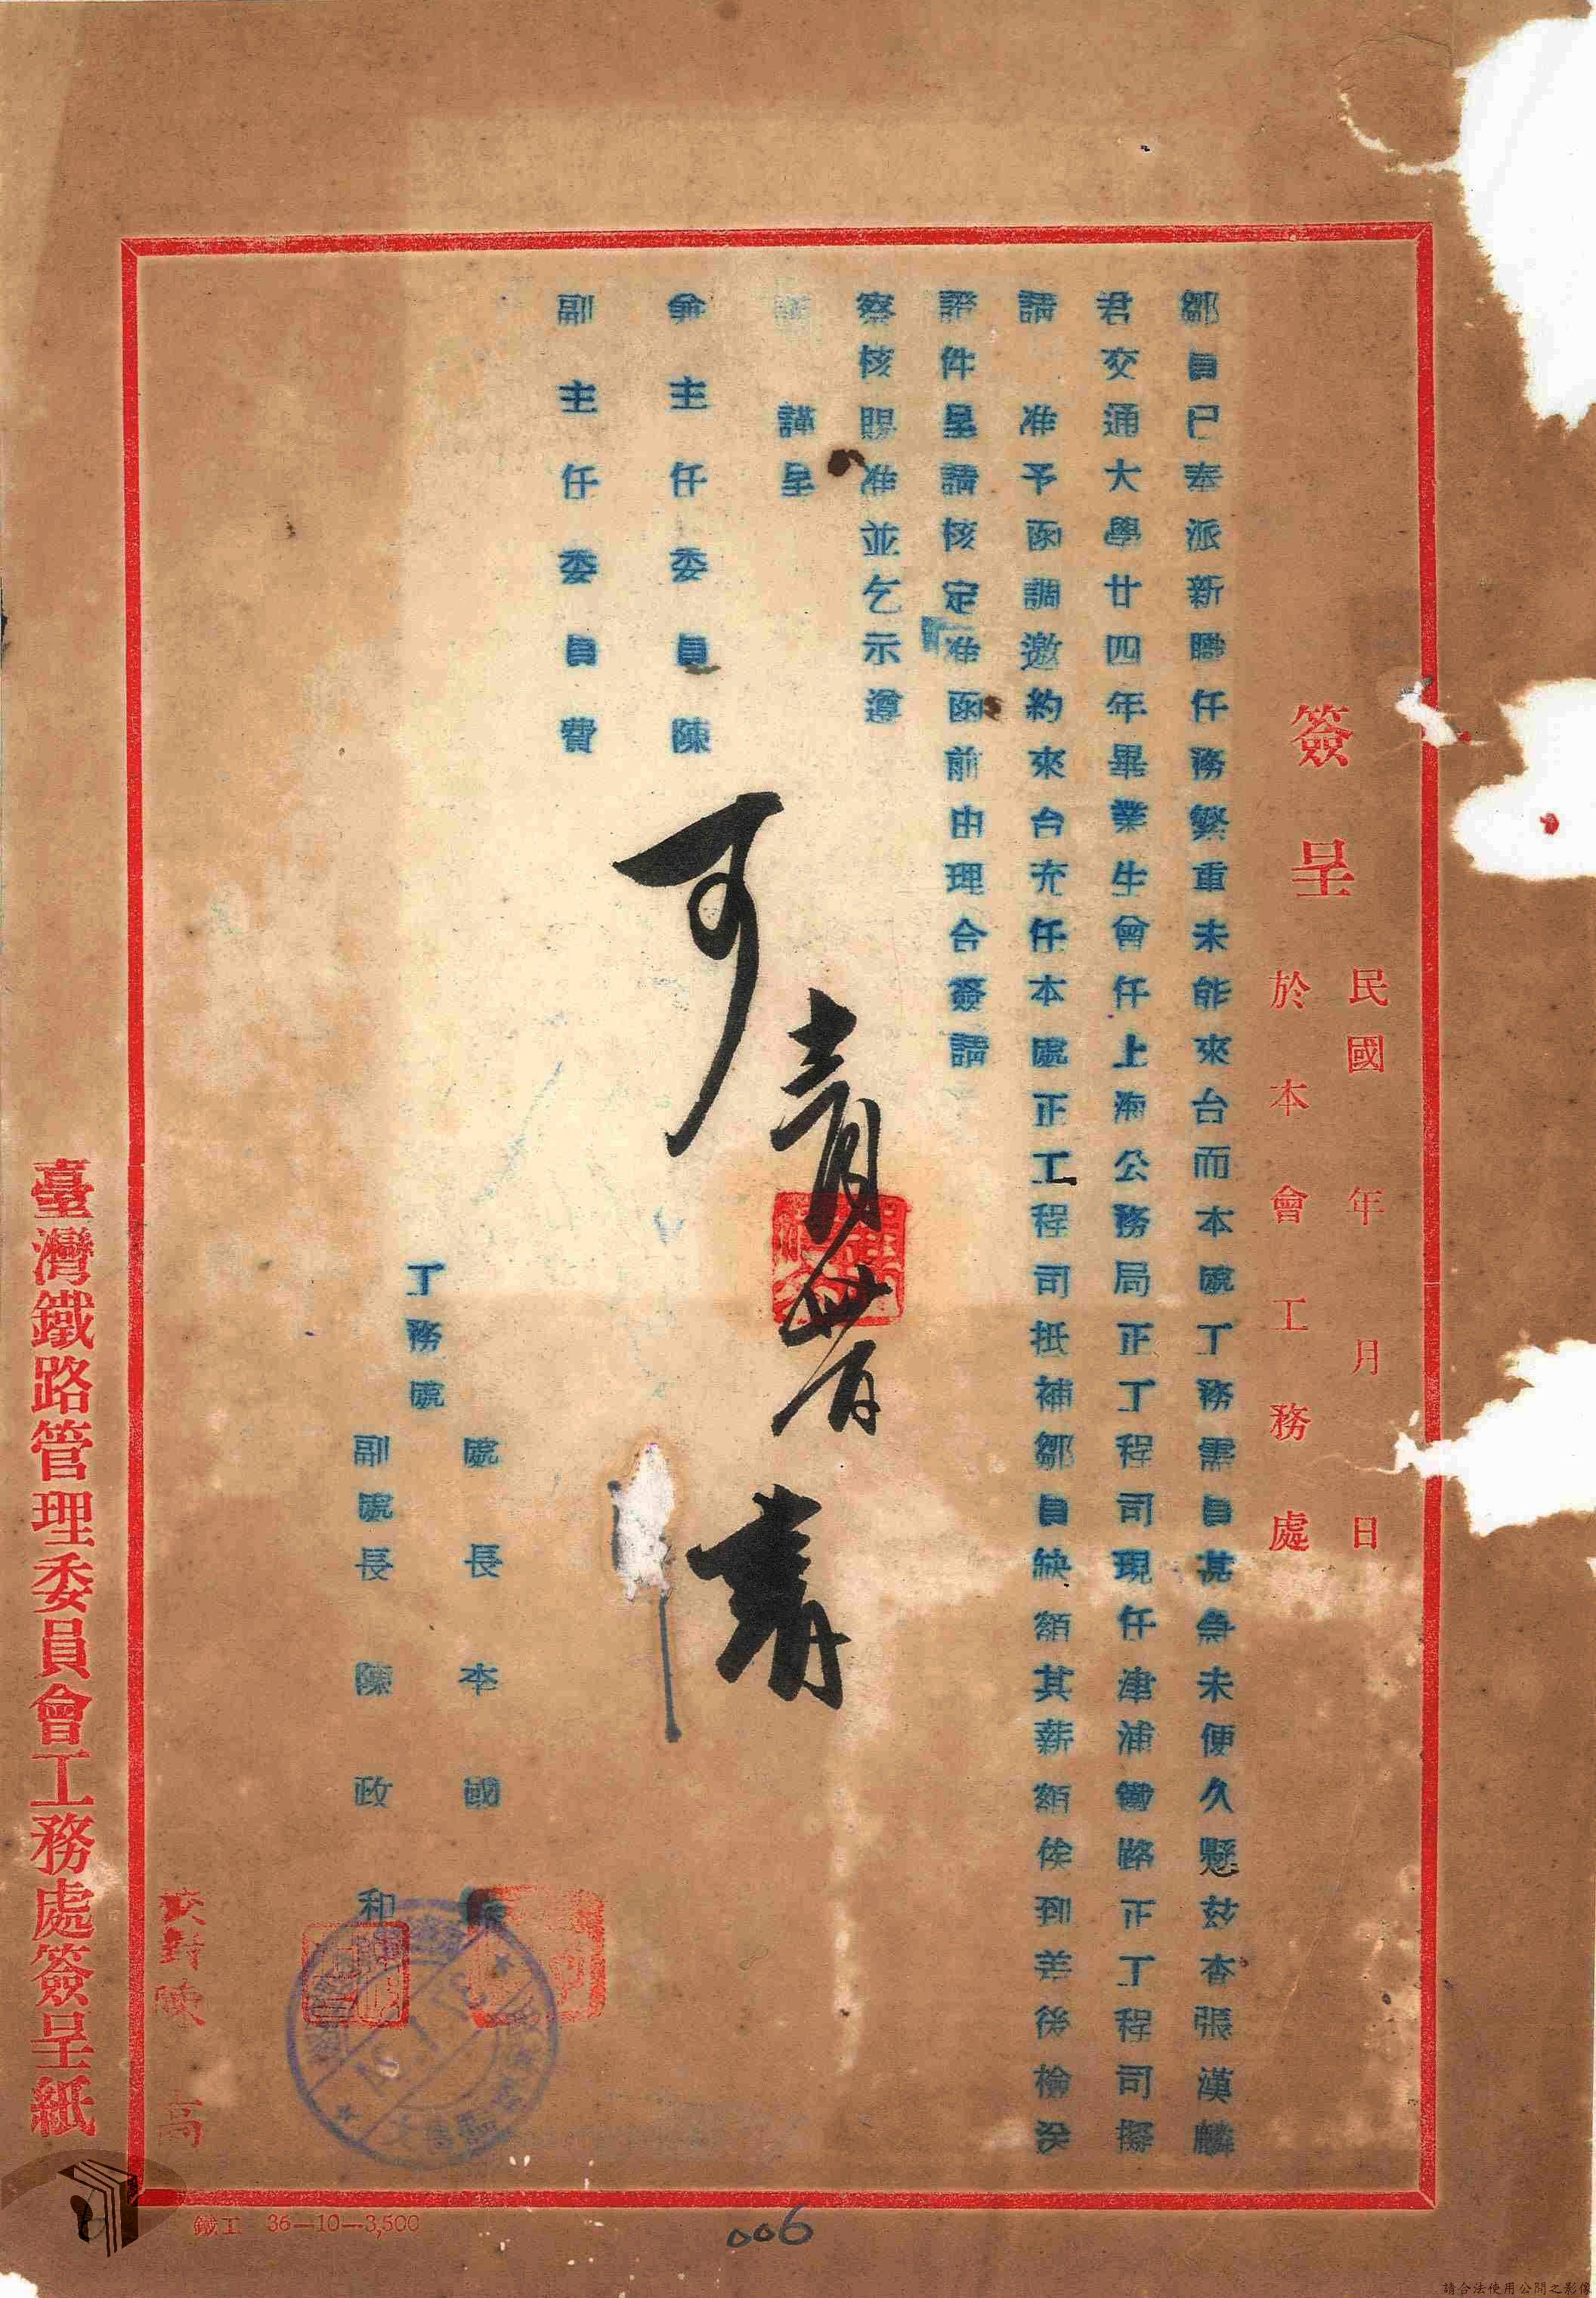 簽呈
民國 年 月 日
於本會工務處
鄒員已奉派新職任務繁重未能來台而本處工務需員甚急未便久懸茲查張漢麟
君交通大學廿四年畢業生曾任上海公務局正工程司現任津浦鐵路正工程司擬
請 准予函調邀約來台充任本處正工程司抵補鄒員缺額其薪額俟到差後檢送
證件呈請核定准函前由理合簽請
察核賜准並乞示遵
謹呈
兼主任委員陳
副主任委員費
可
工務處
處長李國
副處長陳政和
校對陳 高
臺灣鐵路管理委員會工務處簽呈紙
鐵工 36—10—3,500
006
請合法使用公開之影像